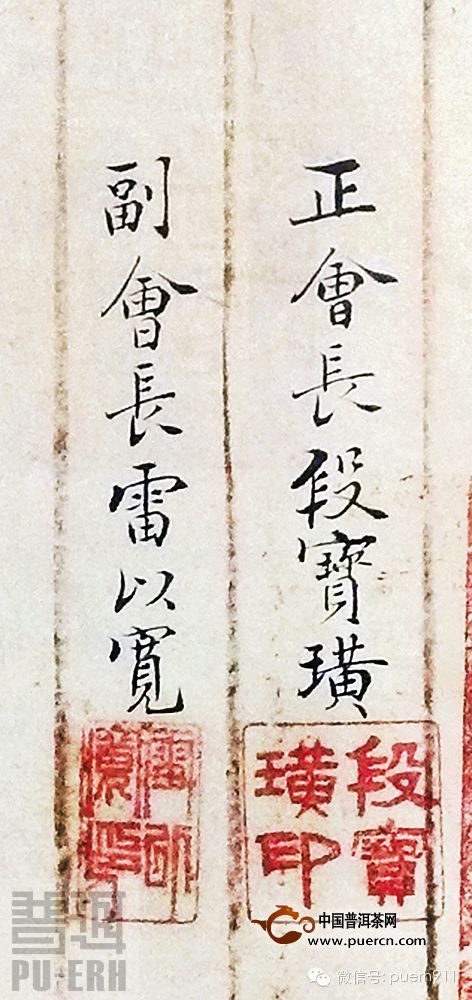 正會長段寶璜
副會長雷以寬
段寶
璜印
普洱
PU-ERH
中国普洱茶网
www.puercn.com
微信号: puern911